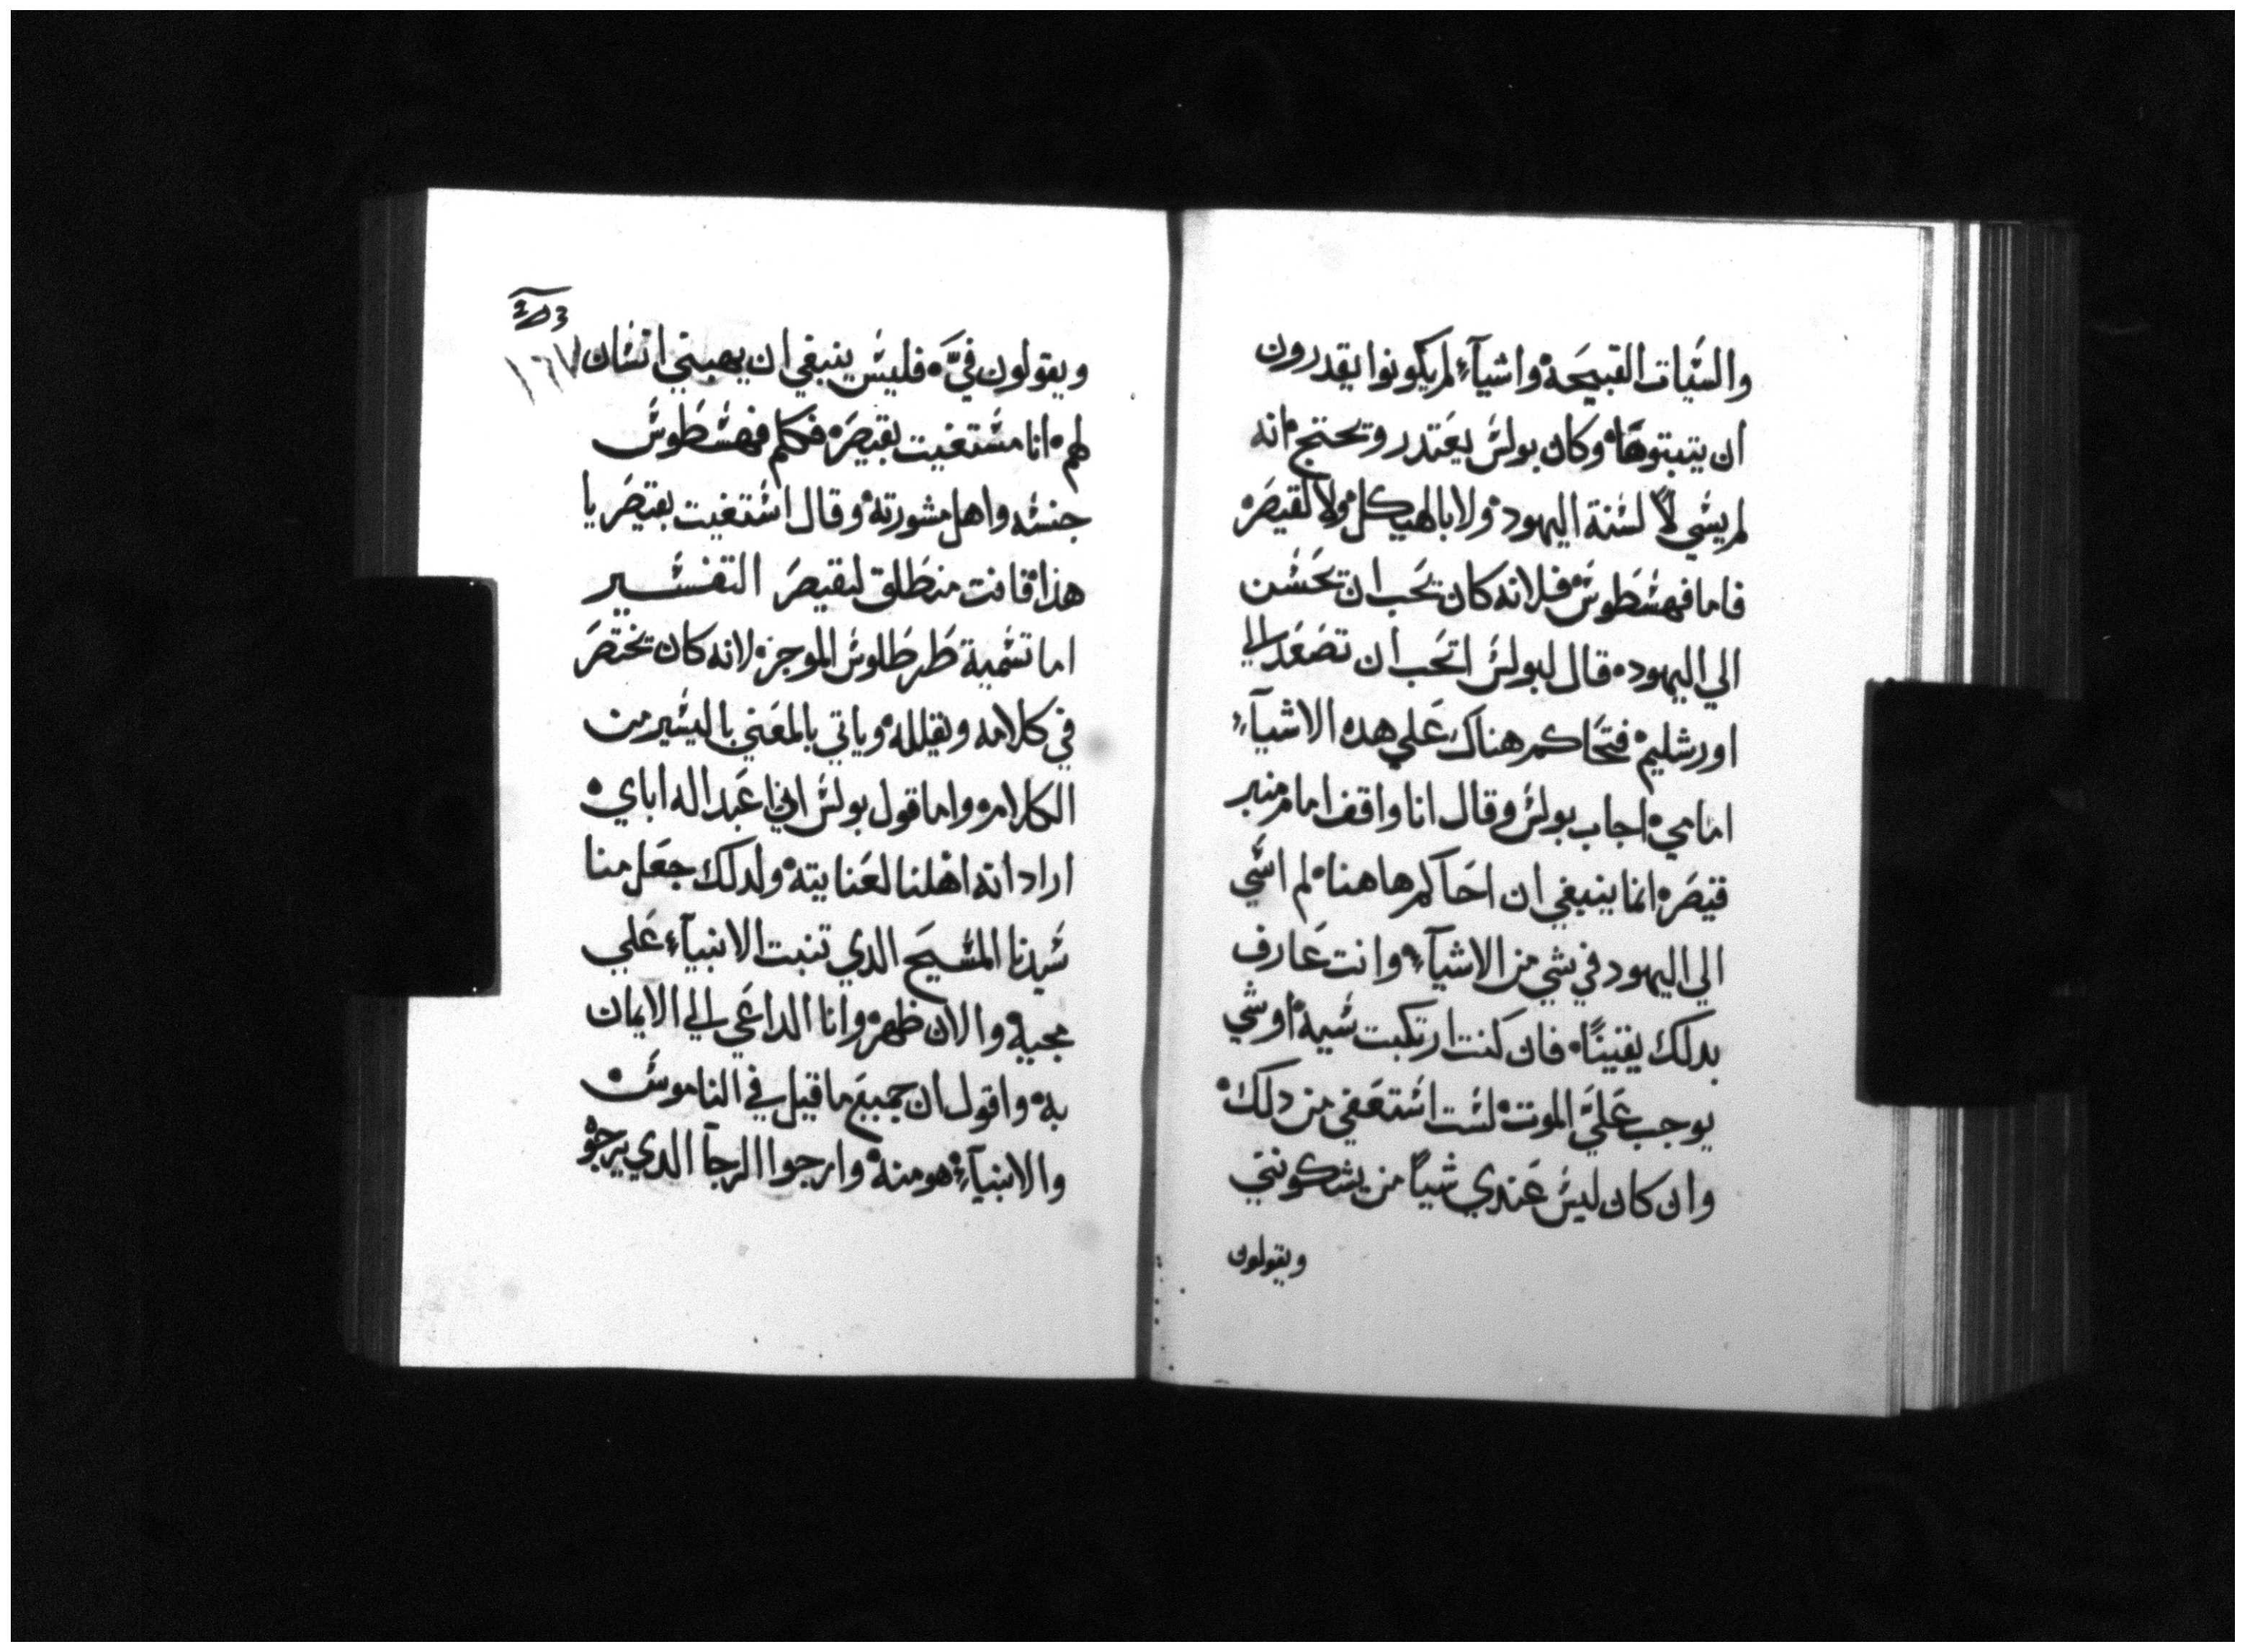 والسيات القبيحة واشيآء لم يكونوا يقدرون
ان يتبتوها وكان بولس يعتدر ويحتج انه
لم يسي لا لسنة اليهود ولا بالهيكل ولا لقيصر
فاما فهسطوس فلانه كان يحب ان يحسن
الي اليهود قال لبولس اتحب ان تصعد الي
اورشليم فتحاكم هناك علي هده الاشيآء
امامي اجاب بولس وقال انا واقف امام منبر
قيصر انما ينبغي ان احاكم هاهنا لم اسي
الي اليهود في شي من الاشيآء وانت عارف
بدلك يقينًا فان كنت ارتكبت سيه او شي
يوجب عليَّ الموت لست استعفي من دلك
وان كان ليس عندي شيًا من يشكونني
ويقولون
ⲣⲝⲍ
١٦٧
ويقولون فيَّ فليس ينبغي ان يهبني انسان
لهم انا مستغيت بقيصر فكلم فهسطوس
جنسه واهل مشورته وقال استغيت بقيصر يا
هذا فانت منطلق لقيصر التفسير
اما تسمية طرطلوس الموجز لانه كان يختصر
في كلامه ويقلله وياتي بالمعني باليسير من
الكلام واما قول بولس اني اعبد اله اباي
اراد انه اهلنا لعنايته ولدلك جعل منا
سيدنا المسيح الدي تنبت الانبيآء علي
مجيه والان ظهر وانا الداعي الي الايمان
به واقول ان جميع ما قيل في الناموس
والانبيآء هو منه وارجوا الرجآ الدي يرجوه